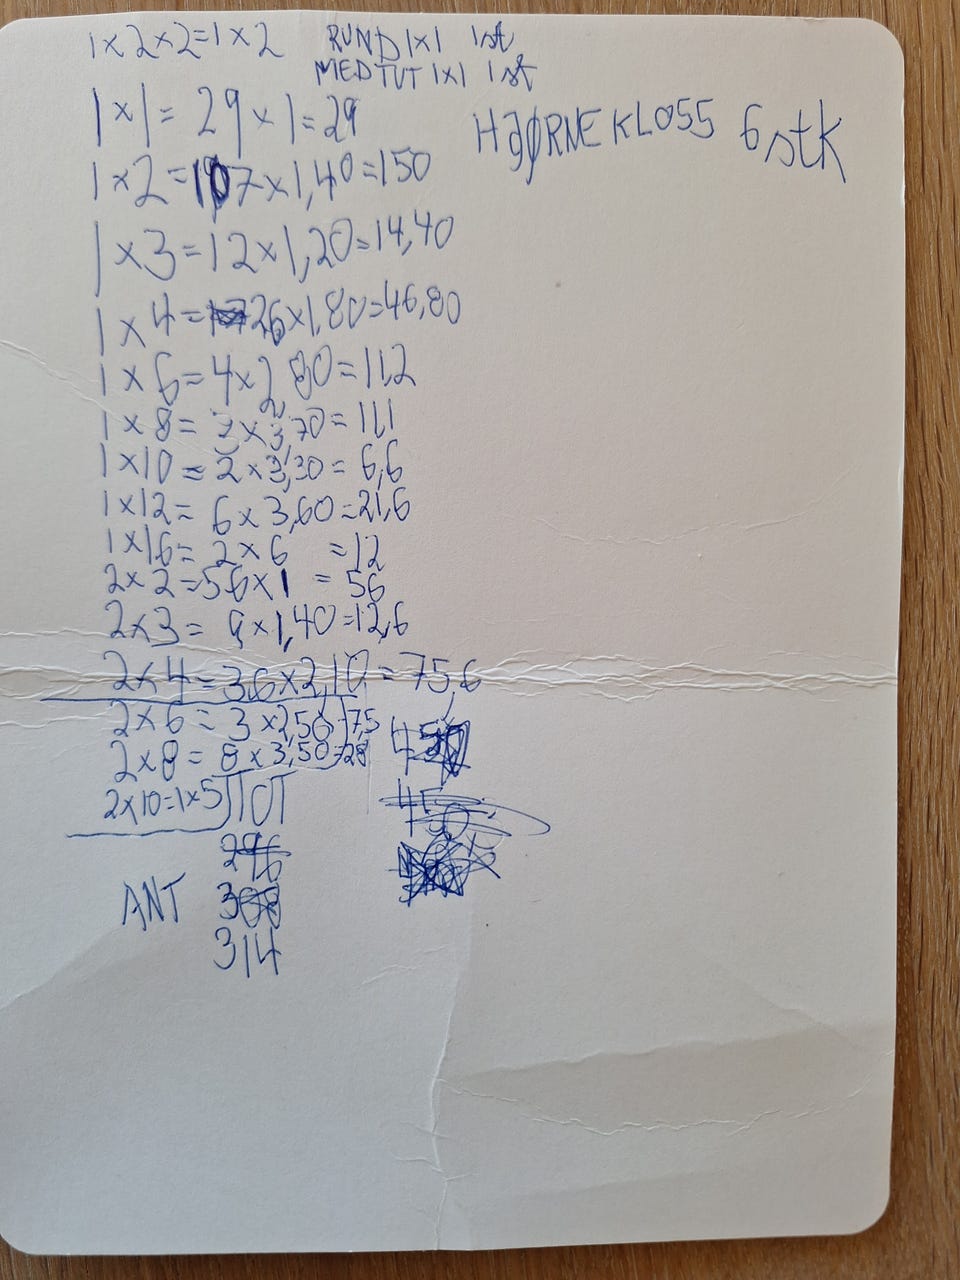 1x2x2=1x2 RUND 1x1 1st
MED TUT 1x1 1st
1x1= 29x1=29
HJØRNE KLOSS 6 stk
1x2=107x1,40=150
1x3=12x1,20=14,40
1x4=26x1,80=46,80
1x6=4x2,80=11,2
1x8= 3x3,70=11,1
1x10= 2x3,30= 6,6
1x12= 6x3,60=21,6
1x16= 2x6 =12
2x2=56x1 = 56
2x3= 9x1,40=12,6
2x4=36x2,10=75,6
2x6= 3x2,50=7,5
2x8= 8x3,50=28
2x10=1x5 TOT
296
ANT
314